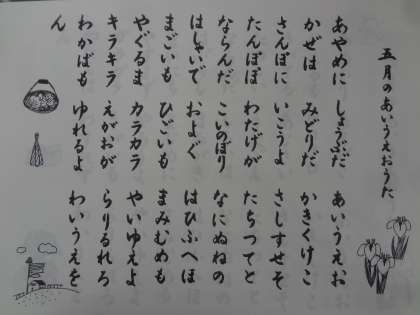 五月のあいうえおうた
あやめに しょうぶだ あいうえお
かぜは みどりだ かきくけこ
さんぽに いこうよ さしすせそ
たんぽぽ わたげが たちつてと
ならんだ こいのぼり なにぬねの
はしゃいで およぐ はひふへほ
まごいも ひごいも まみむめも
やぐるま カラカラ やいゆえよ
キラキラ えがおが らりるれろ
わかばも ゆれるよ わいうえを
ん